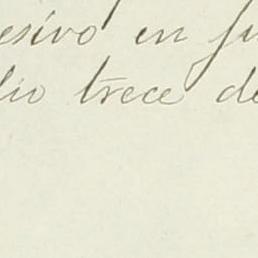 esivo en fu
lio trece de